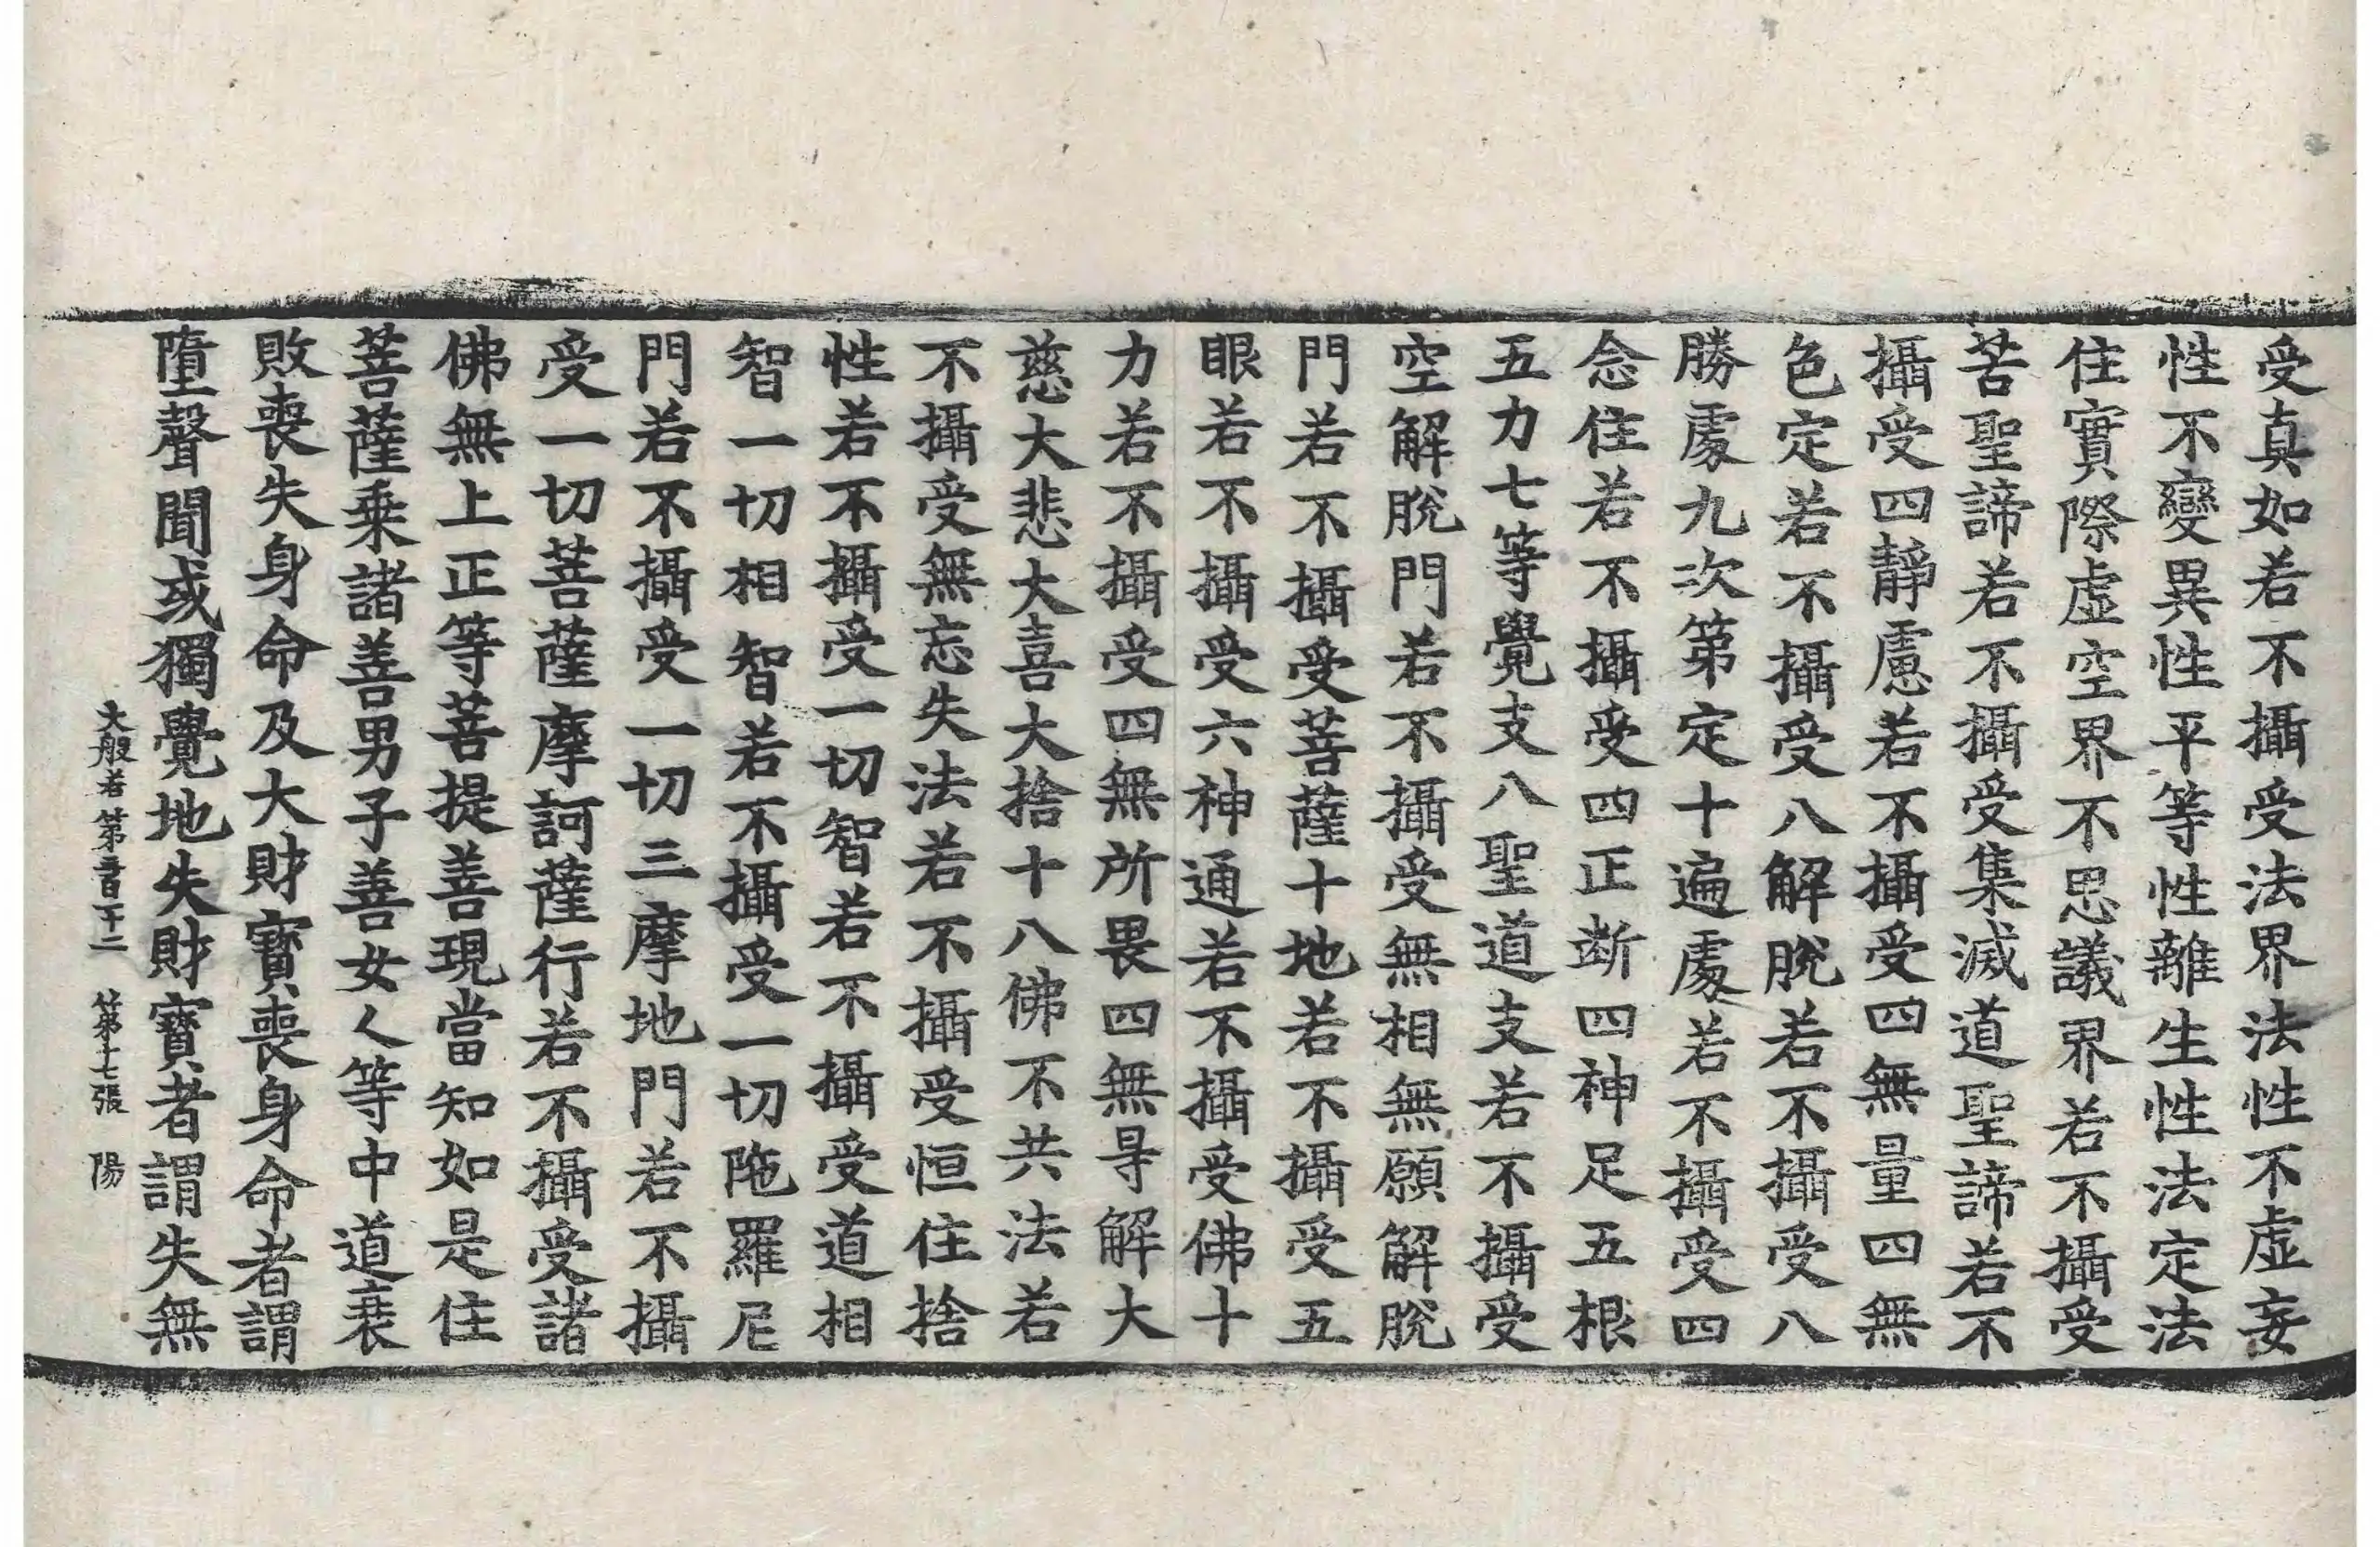 受真如若不攝受法界法性不虛妄
性不變異性平等性離生性法定法
住實際虛空界不思議界若不攝受
苦聖諦若不攝受集滅道聖諦若不
攝受四靜慮若不攝受四無量四無
色定若不攝受八解脫若不攝受八
勝處九次第定十遍處若不攝受四
念住若不攝受四正断四神足五根
五力七等覺支八聖道支若不攝受
空解脫門若不攝受無相無願解脫
門若不攝受菩薩十地若不攝受五
眼若不攝受六神通若不攝受佛十
力若不攝受四無所畏四無㝵解大
慈大悲大喜大捨十八佛不共法若
不攝受無忘失法若不攝受恒住捨
性若不攝受一切智若不攝受道相
智一切相智若不攝受一切陁羅尼
門若不攝受一切三摩地門若不攝
受一切菩薩摩訶薩行若不攝受諸
佛無上正等菩提善現當知如是住
菩薩乘諸善男子善女人等中道衰
敗喪失身命及大財寶喪身命者謂
墮聲聞或獨覺地失財寶者謂失無
大般若第三百一十二 第七張 陽